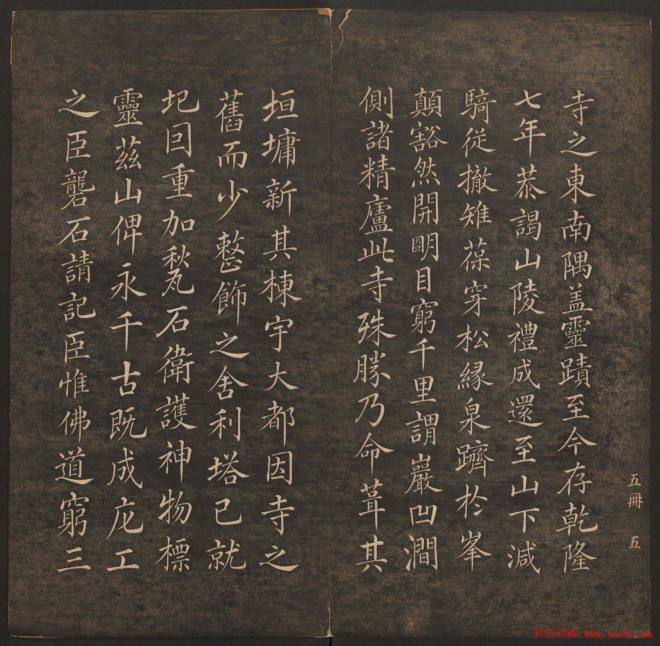 五冊 五
寺之東南隅盖靈蹟至今存乾隆
七年恭謁山陵禮成還至山下減
騎從撤雉葆穿松緣泉躋於峯
顛豁然開朙目窮千里謂巖凹澗
側諸精廬此寺殊勝乃命葺其
垣墉新其棟宇大都因寺之
舊而少整飾之舍利塔已就
圯回重加甃石衛護神物標
靈茲山俾永千古既成庀工
之臣礱石請記臣惟佛道窮三